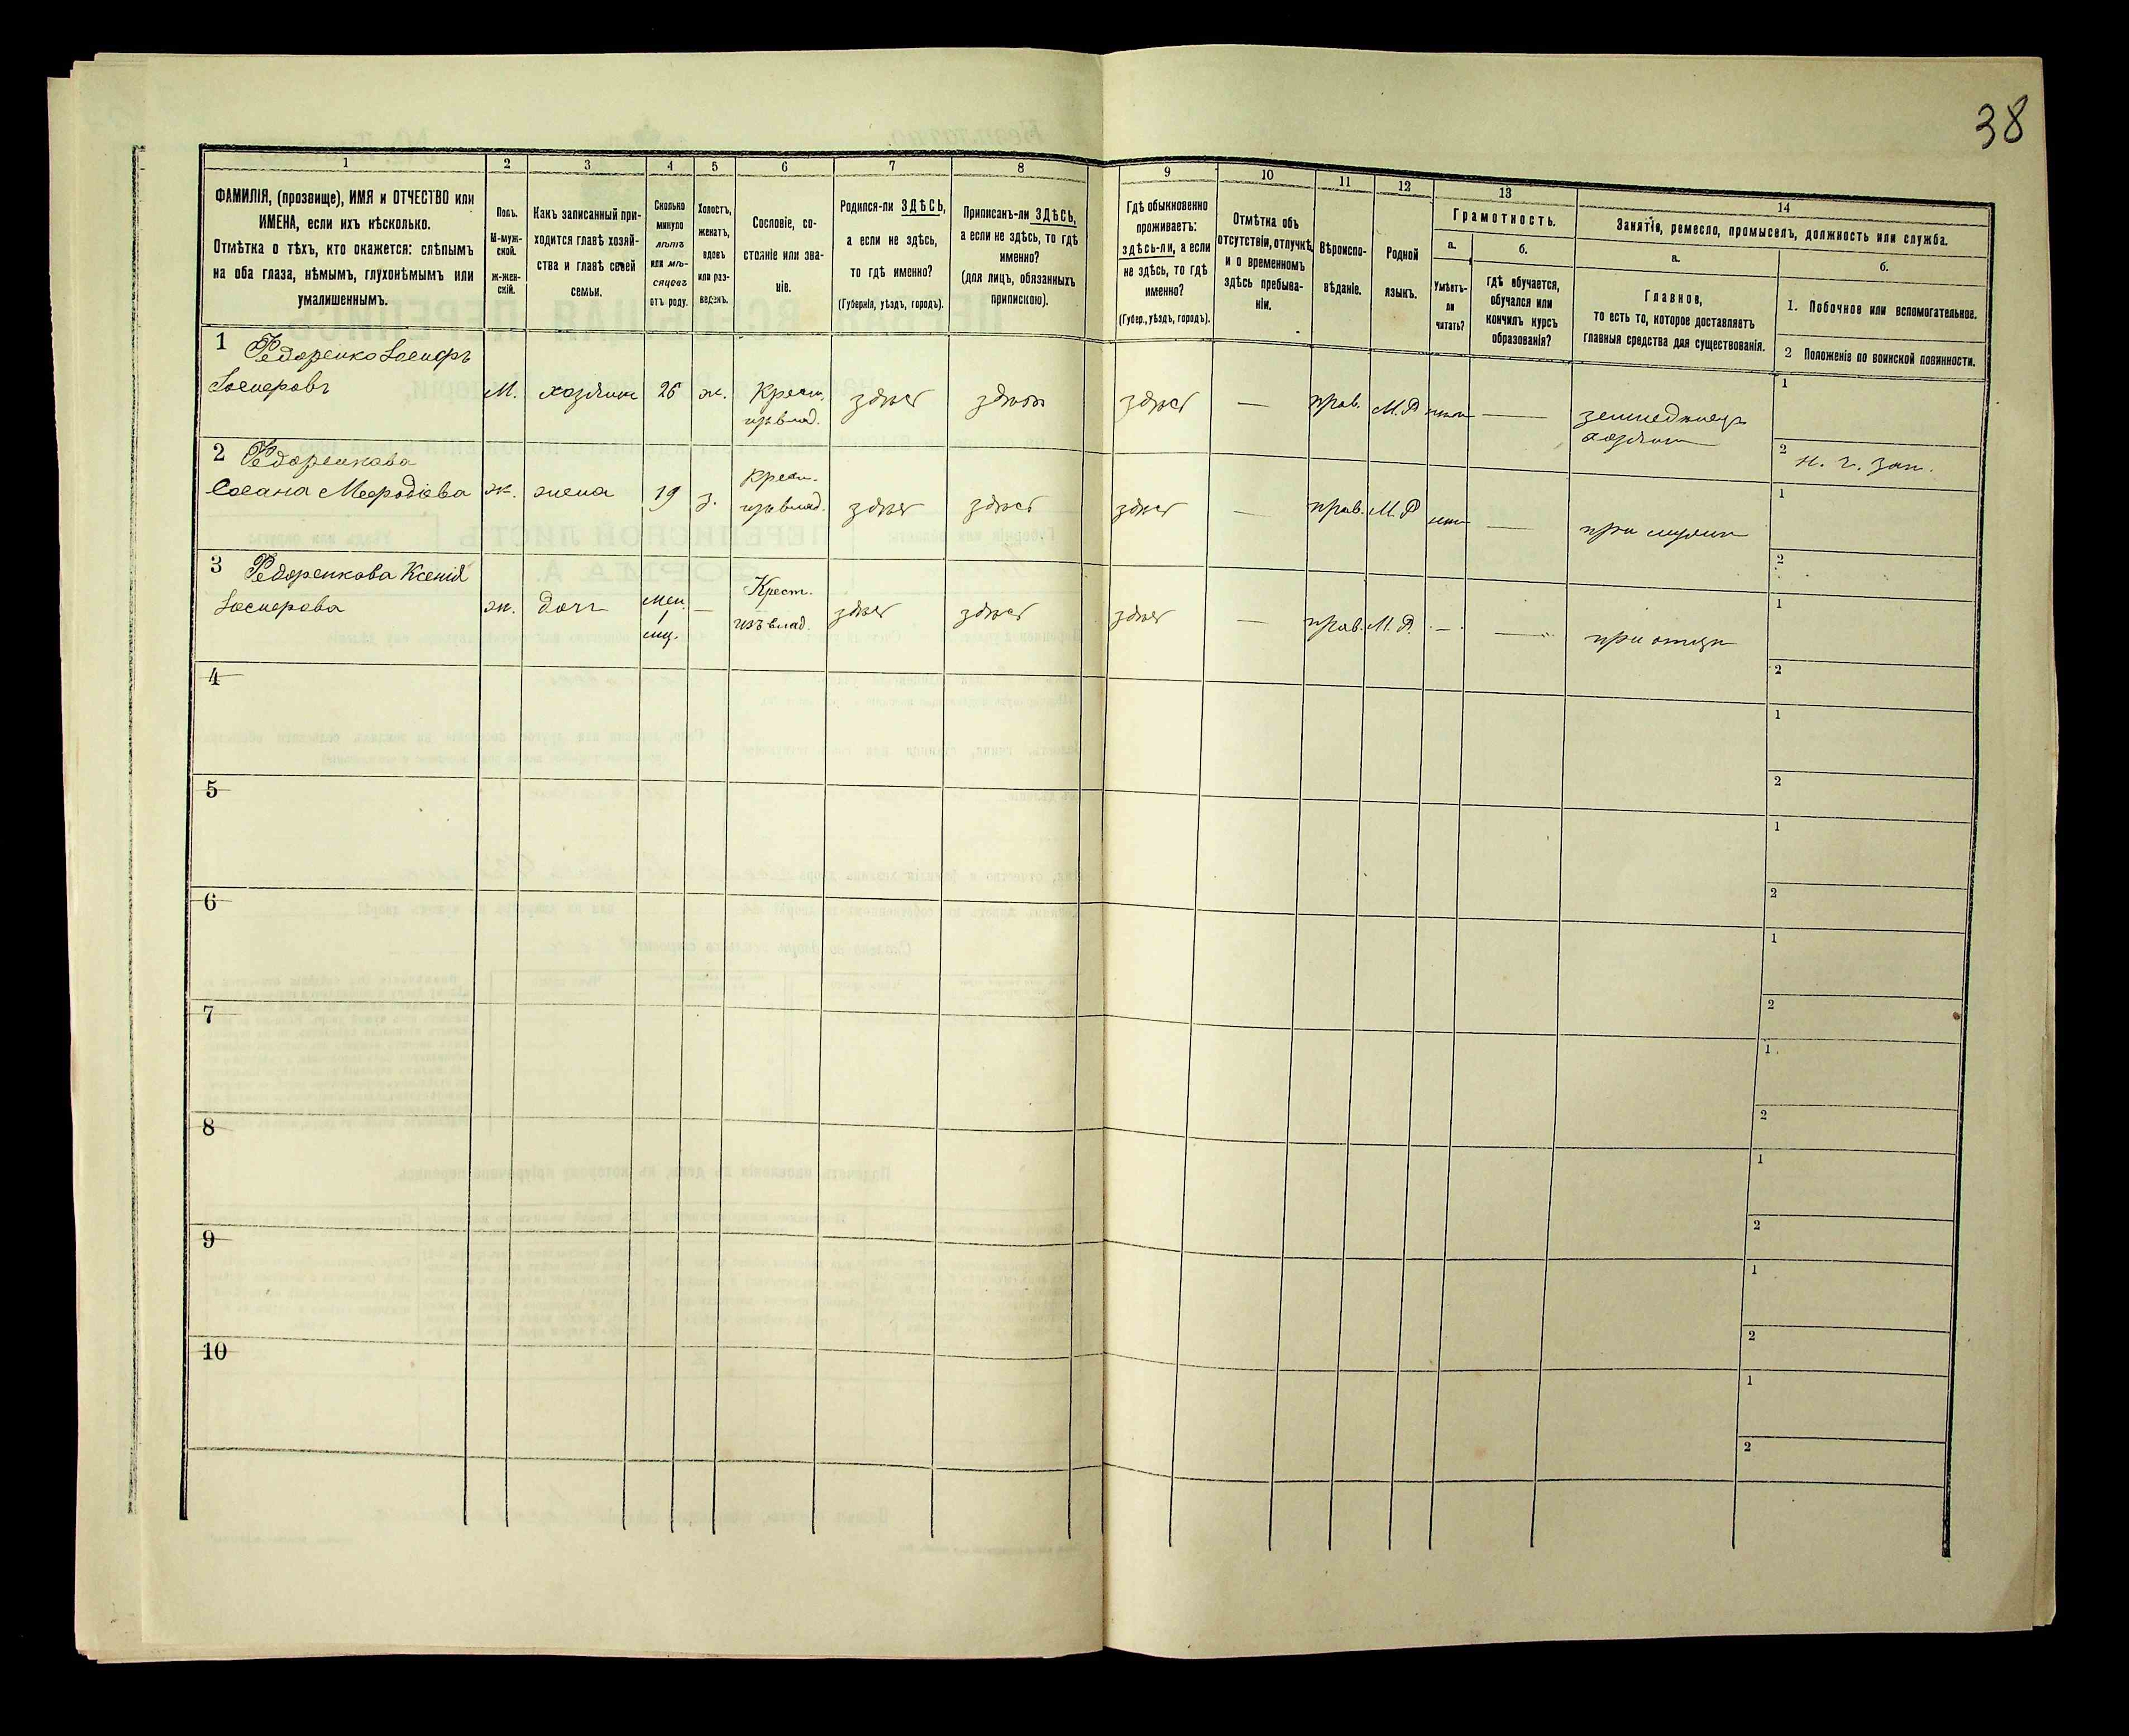 38
1
2
3
4
5
6
7
8
9
10
11
12
13
14
ФАМИЛІЯ, (прозвище), ИМЯ и ОТЧЕСТВО или
ИМЕНА, если ихъ нѣсколько.
Отмѣтка о тѣхъ, кто окажется: слѣпымъ
на оба глаза, нѣмымъ, глухонѣмымъ или
умалишеннымъ.
Полъ.
М-муж-
ской.
Ж-жен-
скій.
Какъ записанный при-
ходится главѣ хозяй-
ства и главѣ своей
семьи.
Сколько
минуло
лѣтъ
или мѣ-
сяцевъ
отъ роду.
Холостъ,
женатъ,
вдовъ
или раз-
веденъ.
Сословіе, со-
стояніе или зва-
ніе.
Родился-ли ЗДѢСЬ,
а если не здѣсь,
то гдѣ именно?
(Губернія, уѣздъ, городъ).
Приписанъ-ли ЗДѢСЬ,
а если не здѣсь, то гдѣ
именно?
(для лицъ, обязанныхъ
припискою).
Гдѣ обыкновенно
проживаетъ:
здѣсь-ли, а если
не здѣсь, то гдѣ
именно?
(Губер., уѣздъ, городъ).
Отмѣтка объ
отсутствіи, отлучкѣ
и о временномъ
здѣсь пребыва-
ніи.
Вѣроиспо-
вѣданіе.
Родной
языкъ.
Грамотность.
а.
Умѣетъ-
ли
читать?
б.
Гдѣ обучается,
обучался или
кончилъ курсъ
образованія?
Занятіе, ремесло, промыселъ, должность или служба.
а.
Главное,
то есть то, которое доставляетъ
главныя средства для существованія.
б.
1. Побочное или вспомогательное.
2 Положеніе по воинской повинности.
1 Федоренко Іосифъ
Іосифовъ
М. хозяинъ 26 ж. Крест. изъ влад. здѣсь здѣсь здѣсь — прав. М.Р. нѣтъ — земледѣлецъ
хозяинъ
1
2 н. ч. зап.
2 Федоренкова
Мефодіева ж. жена 19 з. Крест. изъ влад. здѣсь здѣсь здѣсь — прав. М.Р. нѣтъ — при мужѣ
1
2
3 Федоренкова Ксенія
Іосифова ж. дочь — Крест. изъ влад. здѣсь здѣсь здѣсь — прав. М.Р. — — при отцѣ
1
2
4
1
2
5
1
2
6
1
2
7
1
2
8
1
2
9
1
2
10
1
2